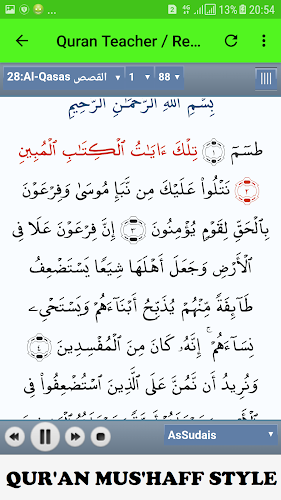 13% 20:54
Quran Teacher / Re...
28:Al-Qasas القصص 1 88
بِسْمِ ٱللَّهِ ٱلرَّحْمَـٰنِ ٱلرَّحِيمِ
طسٓمٓ ١ تِلْكَ ءَايَـٰتُ ٱلْكِتَـٰبِ ٱلْمُبِينِ
٢ نَتْلُوا۟ عَلَيْكَ مِن نَّبَإِ مُوسَىٰ وَفِرْعَوْنَ
بِٱلْحَقِّ لِقَوْمٍ يُؤْمِنُونَ ٣ إِنَّ فِرْعَوْنَ عَلَا فِى
ٱلْأَرْضِ وَجَعَلَ أَهْلَهَا شِيَعًا يَسْتَضْعِفُ
طَآئِفَةً مِّنْهُمْ يُذَبِّحُ أَبْنَآءَهُمْ وَيَسْتَحْىِۦ
نِسَآءَهُمْ ۚ إِنَّهُۥ كَانَ مِنَ ٱلْمُفْسِدِينَ ٤
وَنُرِيدُ أَن نَّمُنَّ عَلَى ٱلَّذِينَ ٱسْتُضْعِفُوا۟ فِى
AsSudais
QUR'AN MUS'HAFF STYLE